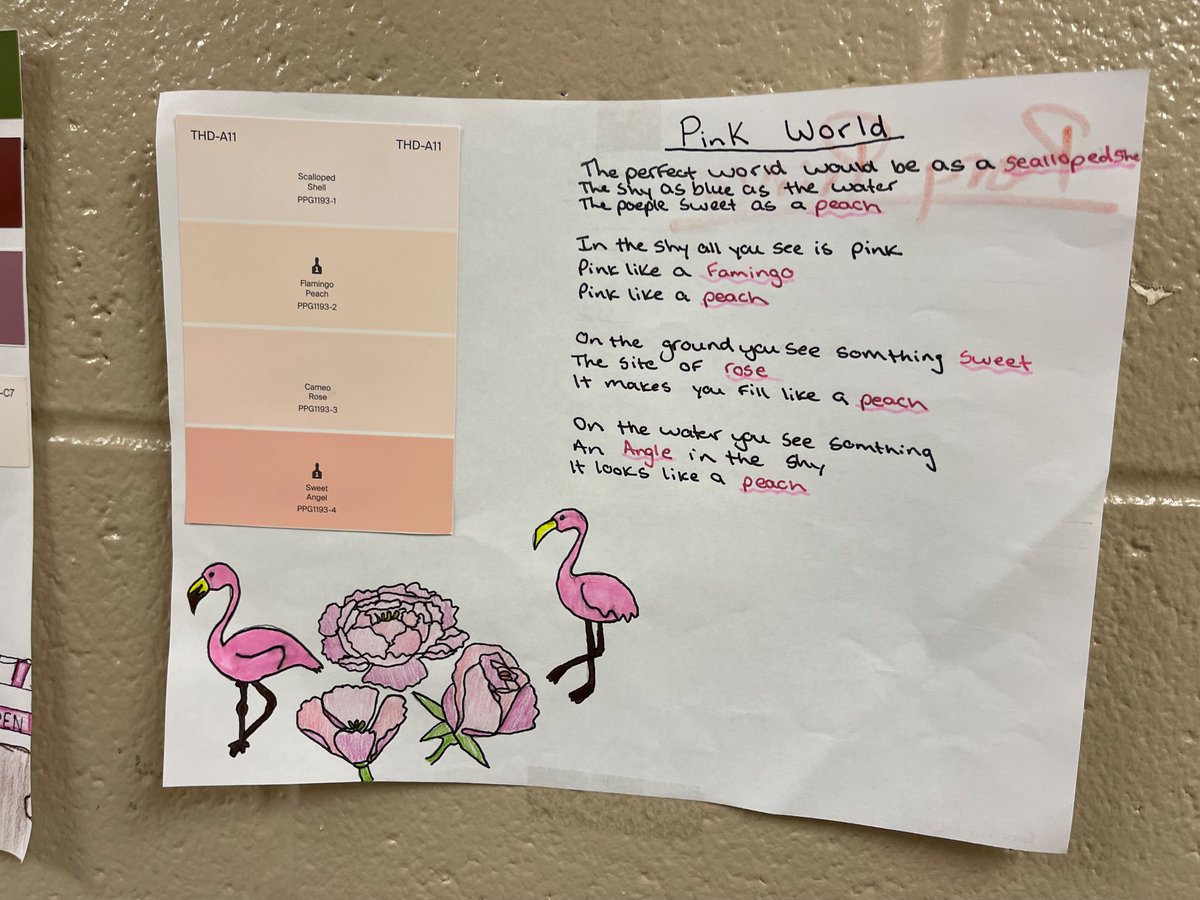 THD-A11
THD-A11
Scalloped
Shell
PPG1193-1
Flamingo
Peach
PPG1193-2
Cameo
Rose
PPG1193-3
Sweet
Angel
PPG1193-4
Pink World
The perfect world would be as a seallopedshe
The shy as blue as the water
The poeple sweet as a peach
In the shy all you see is pink
Pink like a Famingo
Pink like a peach
On the ground you see somthing sweet
The site of rose
It makes you fill like a peach
On the water you see somthing
An Angle in the shy
It looks like a peach
-C7
PEN